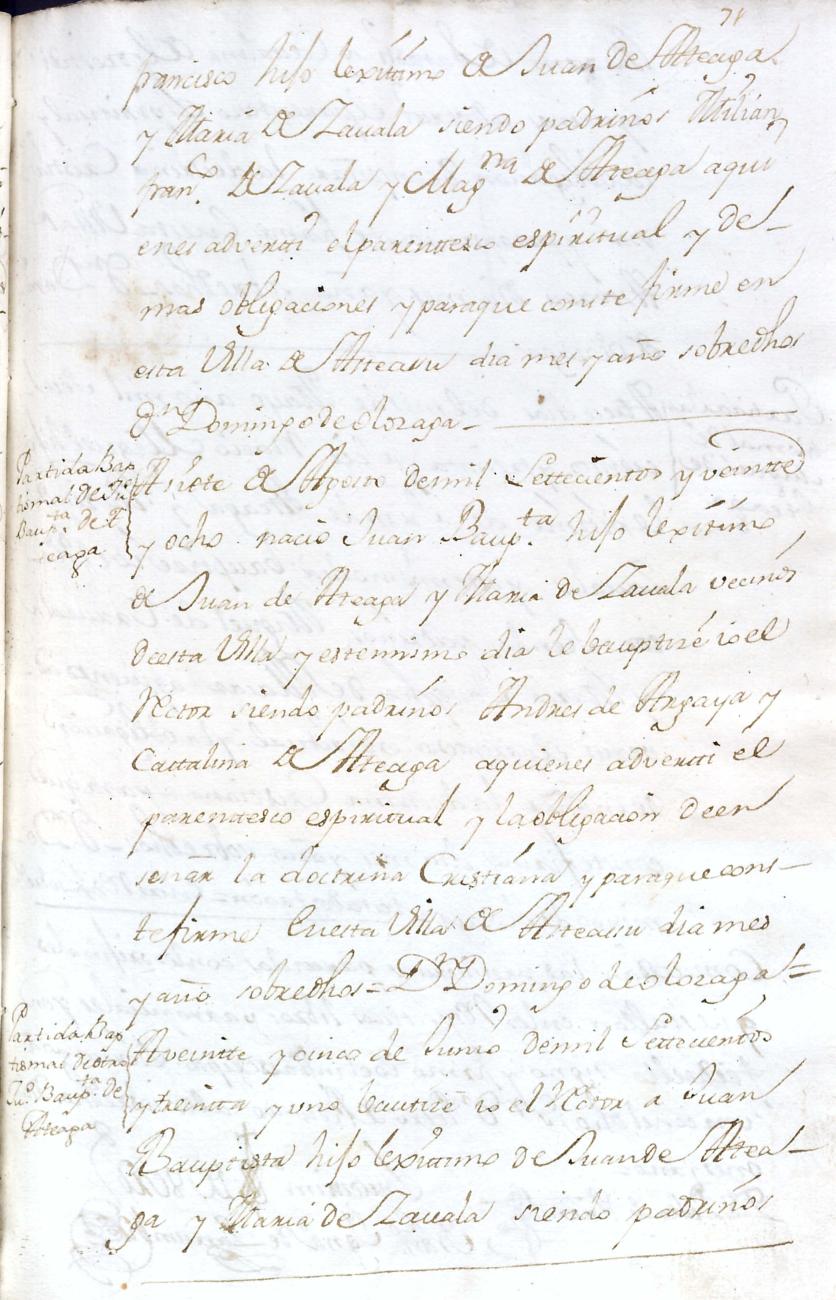 71
francisco hijo lexitimo de Juan de Atteaga
y Maria de Zauala siendo padrinos Millan
franco. de Zauala y Magna de Atteaga aqui
enes adverti el parenttesco espiritual y de-
mas obligaciones y paraque conste firme en
esta Villa de Asteasu dia mes y año sobredhos
Dn Domingo de olozaga
Partida Bap
tismal de Ju
Baupta. de A
teaga
A siete de Agosto demil Settecientos y veintte
y ocho nacio Juan Baupta. hijo lexitimo
de Juan de Atteaga y Maria de Zauala vecinos
deesta Villa y estemismo dia le bauptize io el
Rector siendo padrinos Andres de Argaya y
Cattalina de Atteaga aquienes advertti el
parenttesco espiritual y la obligacion deen
señar la doctrina Cristiana y paraque cons-
te firme Enesta Villa de Asteasu dia mes
y año sobredhos = Dn Domingo de olozaga =
Partida Bap
tismal de otro
Juo. Baupta. de
Atteaga
A veintte y cinco de Junio demil Settecientos
y treintta y uno bautize io el Rector a Juan
Bauptista hijo lexittimo de Juan de Attea-
ga y Maria de Zauala siendo padrinos